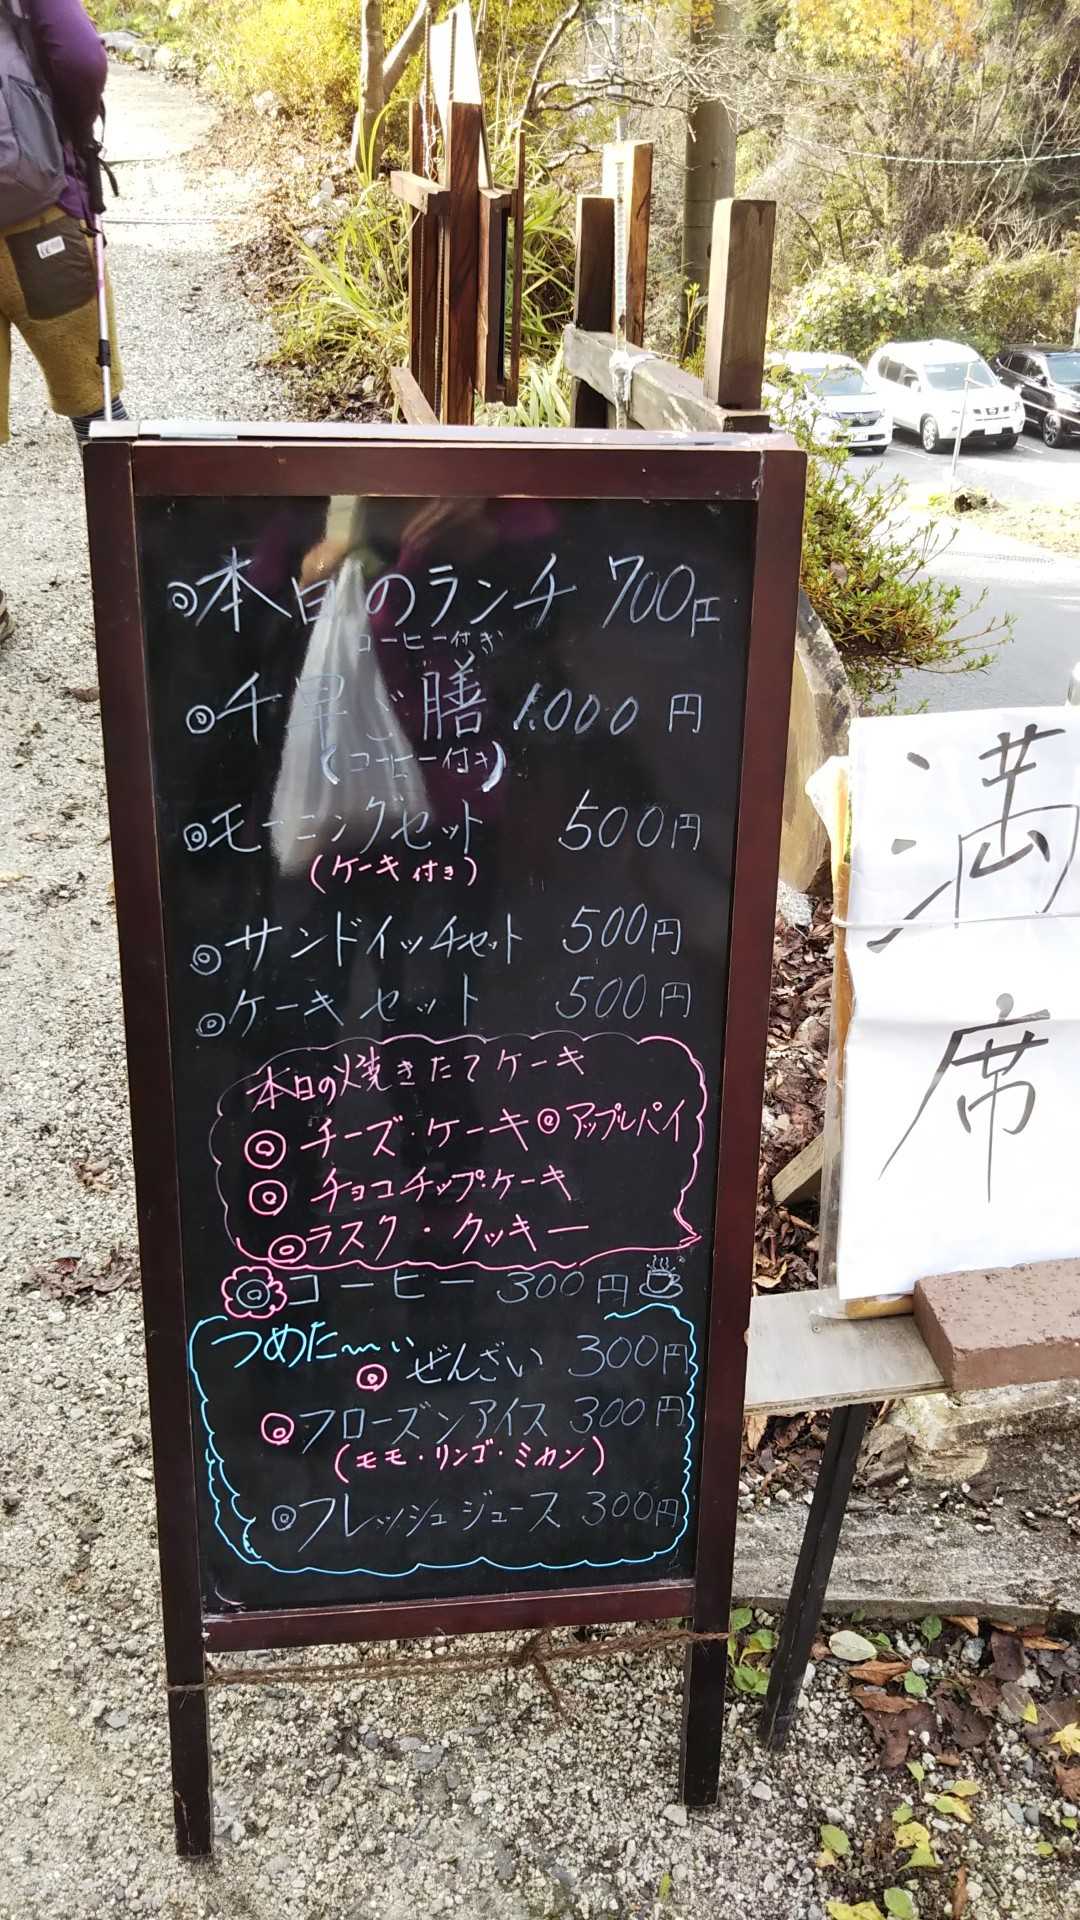 ◎本日のランチ 700円
コーヒー付き
◎千早ご膳 1.000円
(コーヒー付き)
◎モーニングセット 500円
(ケーキ付き)
◎サンドイッチセット 500円
◎ケーキセット 500円
本日の焼きたてケーキ
◎チーズ・ケーキ ◎アップルパイ
◎チョコチップ・ケーキ
◎ラスク・クッキー
◎コーヒー 300円
つめた〜い
◎ぜんざい 300円
◎フローズンアイス 300円
(モモ・リンゴ・ミカン)
◎フレッシュジュース 300円
満席